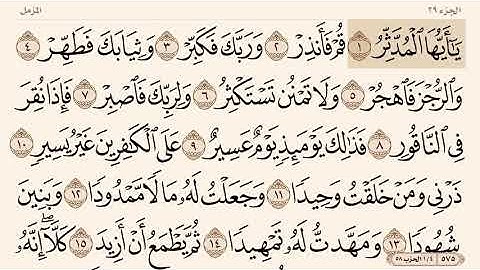 الجزء ٢٩ المزمل
يَٰٓأَيُّهَا ٱلْمُدَّثِّرُ ١ قُمْ فَأَنذِرْ ٢ وَرَبَّكَ فَكَبِّرْ ٣ وَثِيَابَكَ فَطَهِّرْ ٤
وَٱلرُّجْزَ فَٱهْجُرْ ٥ وَلَا تَمْنُن تَسْتَكْثِرُ ٦ وَلِرَبِّكَ فَٱصْبِرْ ٧ فَإِذَا نُقِرَ
فِى ٱلنَّاقُورِ ٨ فَذَٰلِكَ يَوْمَئِذٍ يَوْمٌ عَسِيرٌ ٩ عَلَى ٱلْكَٰفِرِينَ غَيْرُ يَسِيرٍ ١٠
ذَرْنِى وَمَنْ خَلَقْتُ وَحِيدًا ١١ وَجَعَلْتُ لَهُۥ مَالًا مَّمْدُودًا ١٢ وَبَنِينَ
شُهُودًا ١٣ وَمَهَّدتُّ لَهُۥ تَمْهِيدًا ١٤ ثُمَّ يَطْمَعُ أَنْ أَزِيدَ ١٥ كَلَّآ ۖ إِنَّهُۥ
٥٧٥ ١/٤ الحزب ٥٨